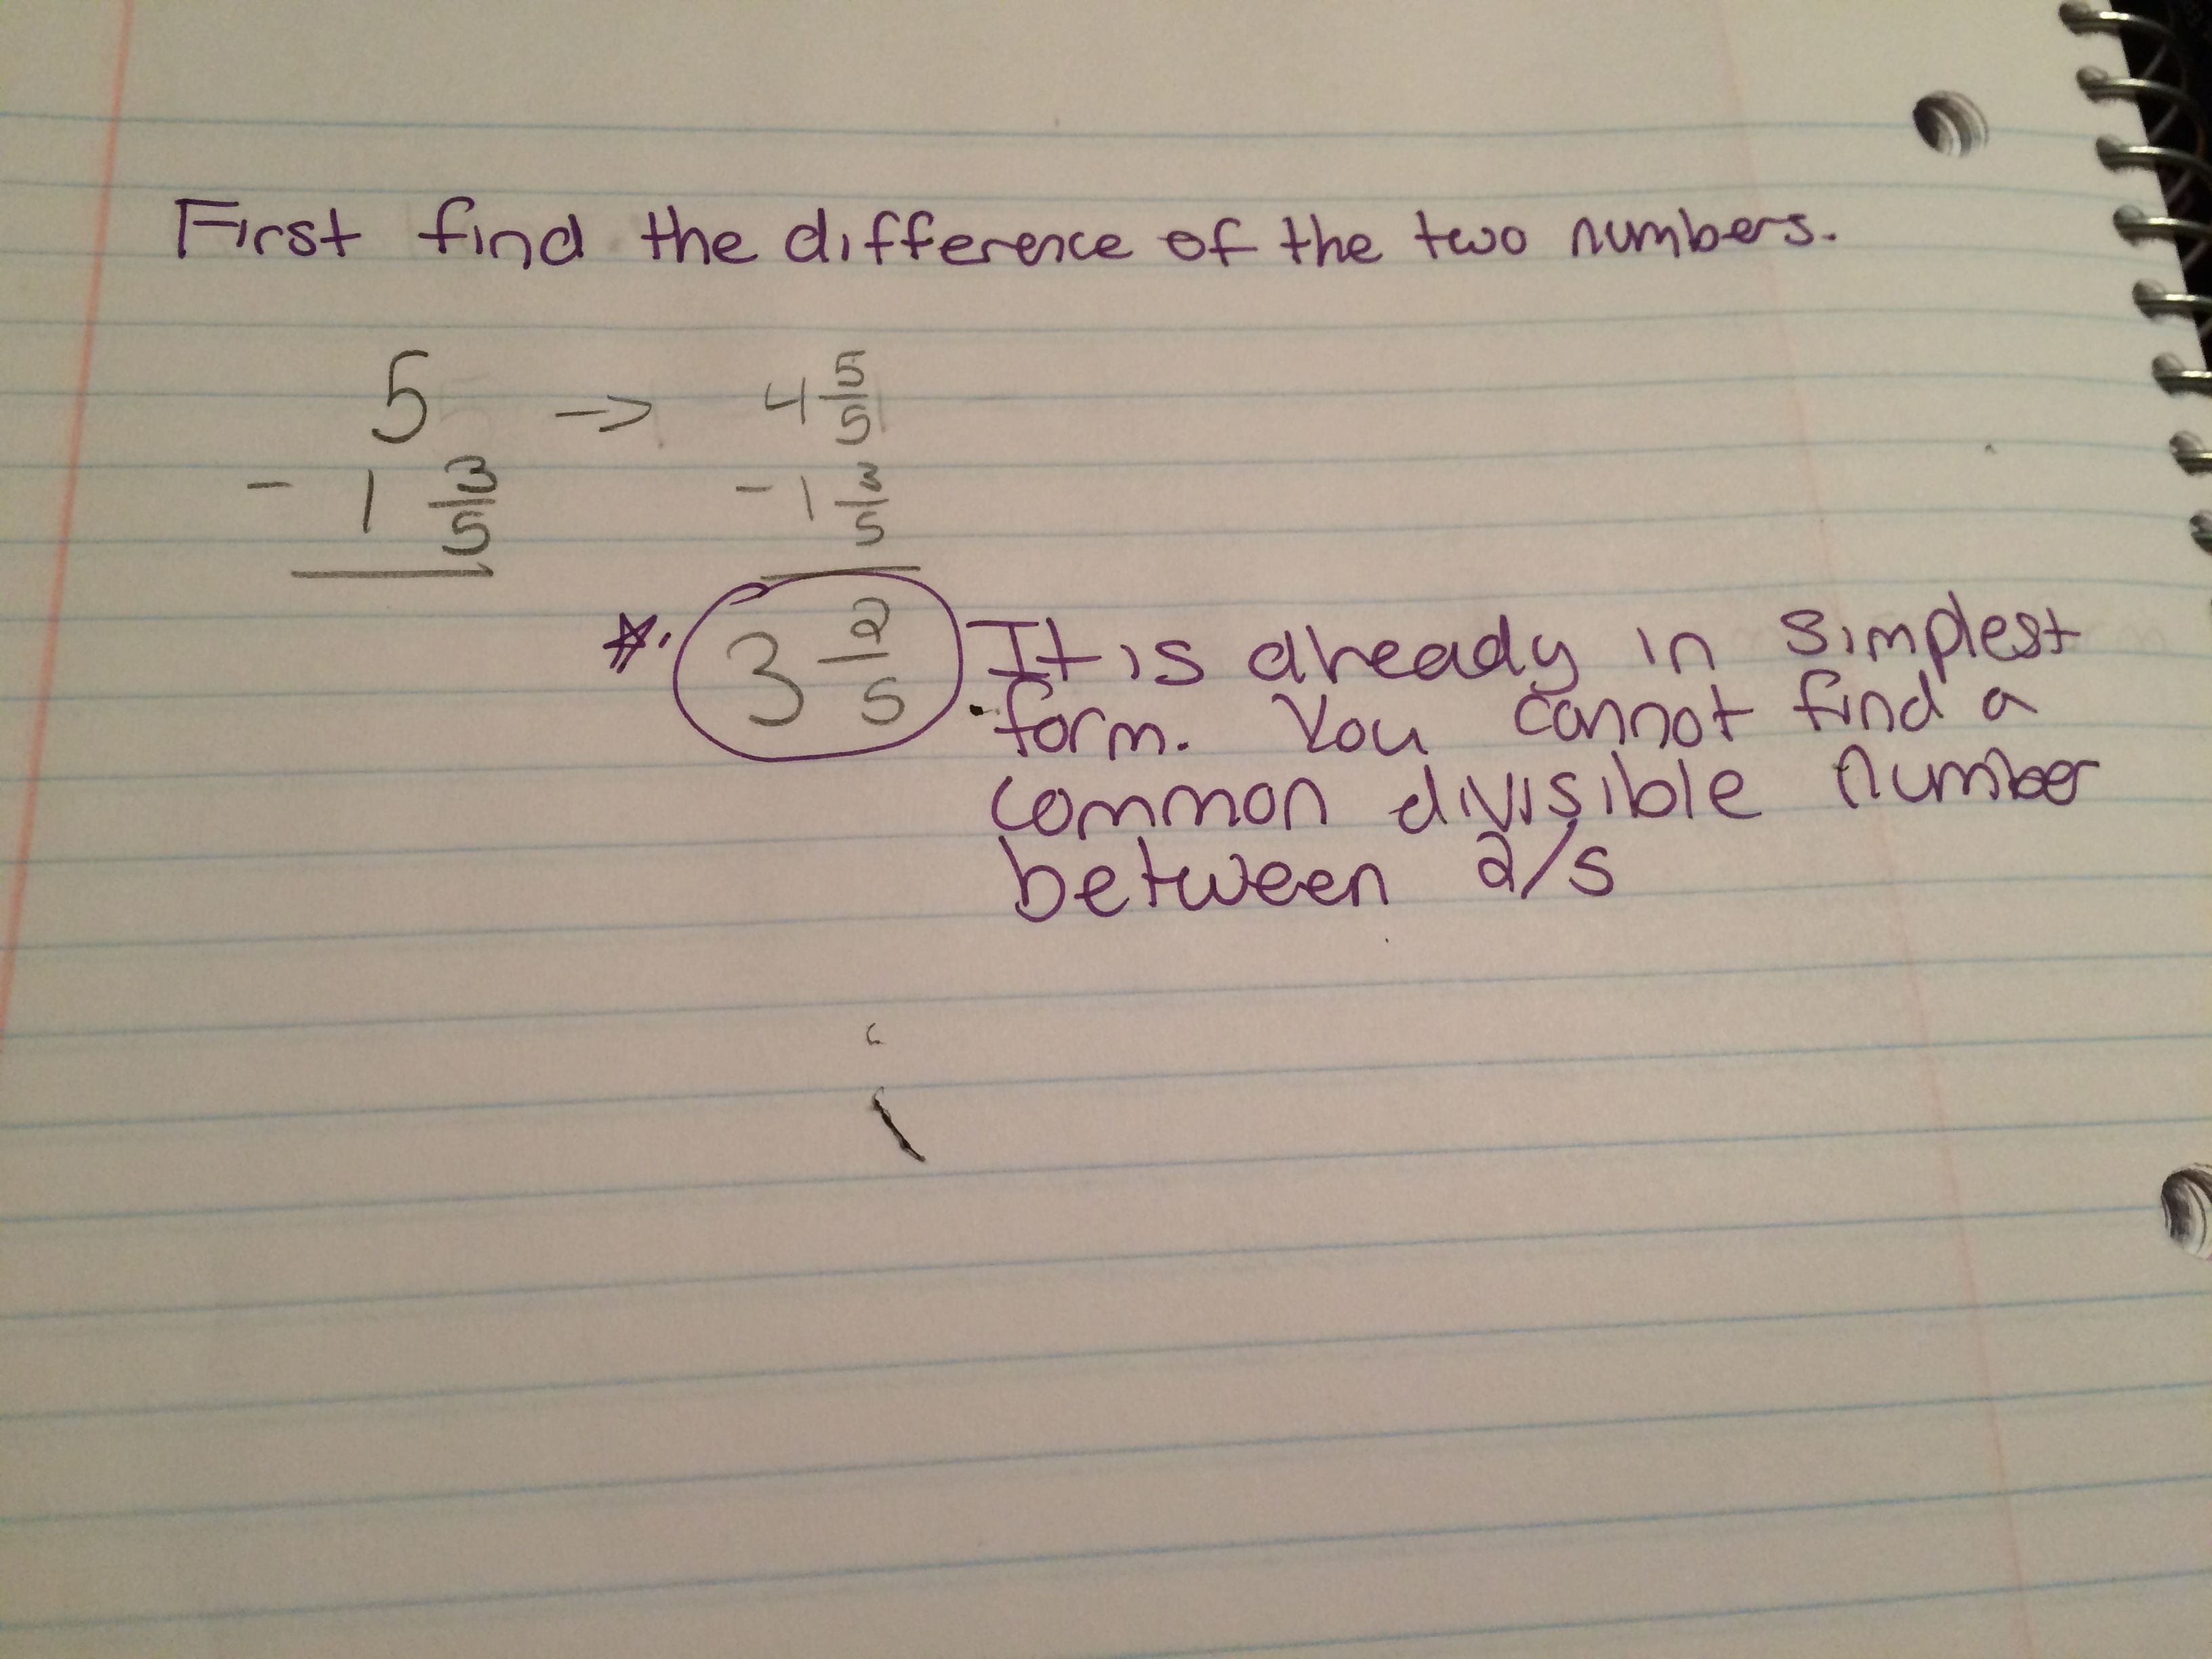 First find the difference of the two numbers.
5 → 4 5/5
- 1 3/5 - 1 3/5
3 2/5 It is already in simplest
form. You cannot find a
common divisible number
between 2/5